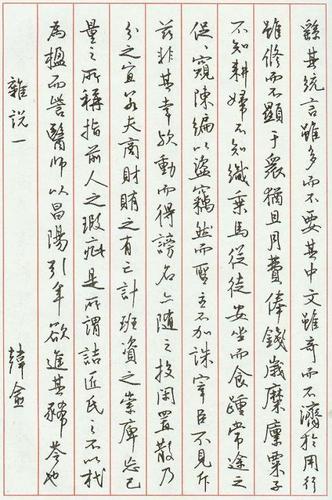 繇其統言雖多而不要其中文雖奇而不濟於用行
雖修而不顯于衆猶且月費俸錢歲糜廩粟子
不知耕婦不知織乘馬從徒安坐而食踵常途之
促々窺陳編以盜竊然而聖主不加誅宰臣不見斥
茲非其幸歟動而得謗名亦隨之投閑置散乃
分之宜若夫商財賄之有亡計班資之崇庳忘己
量之所稱指前人之瑕疵是所謂詰匠氏之不以杙
為楹而訾醫師以昌陽引年欲進其豨苓也
雜說一 韓愈